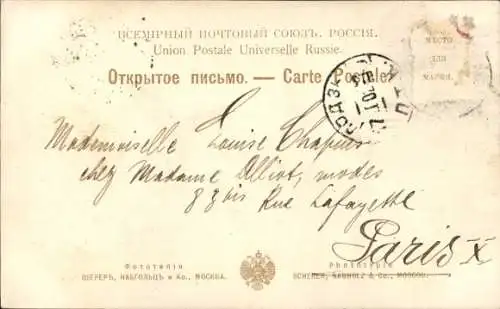 ВСЕМІРНЫЙ ПОЧТОВЫЙ СОЮЗЪ. РОССІЯ.
Union Postale Universelle Russie.
Открытое письмо. — Carte Postale.
МѢСТО
ДЛЯ
МАРКИ.
Mademoiselle Louise Chapuis
chez Madame Alliot, modes
83 bis Rue Lafayette
Paris X
Фототипія
ШЕРЕРЪ, НАБГОЛЬЦЪ и Ко., МОСКВА.
Phototypie
SCHERER, NABHOLZ & Co., MOSCOU.